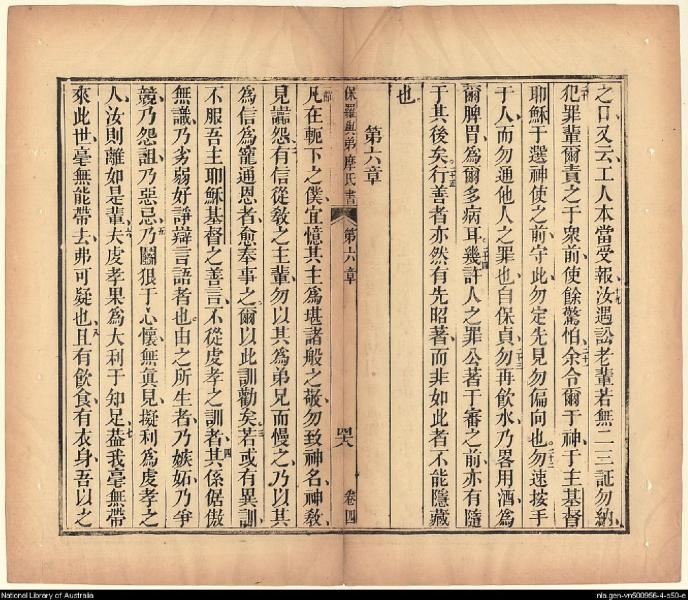 之口又云工人本當受報汝遇訟老輩若無二三証勿納
犯罪輩爾責之于眾前使餘驚怕余令爾于神于主基督
耶穌于選神使之前守此勿定先見勿偏向也勿速按手
于人而勿通他人之罪也自保貞勿再飲水乃畧用酒為
爾脾胃為爾多病耳幾許人之罪公著于審之前亦有隨
于其後矣行善者亦然有先昭著而非如此者不能隱藏
也
第六章
保羅與弟摩氏書 第六章 卷四
凡在軛下之僕宜憶其主為堪諸般之敬勿致神名神教
見謗怨有信從教之主輩勿以其為弟兄而慢之乃以其
為信為寵通恩者愈奉事之爾以此訓勸矣若或有異訓
不服吾主耶穌基督之善言不從虔孝之訓者其係倨傲
無識乃劣弱好諍辯言語者也由之所生者乃嫉妬乃爭
競乃怨詛乃惡忌乃鬬狠于心懷無真見擬利為虔孝之
人汝則離如是輩夫虔孝果為大利于知足葢我毫無帶
來此世毫無能帶去弗可疑也且有飲食有衣身吾以之
National Library of Australia
nla.gen-vn500956-4-s50-e